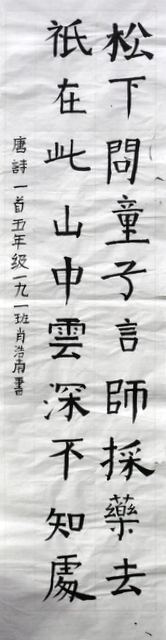 松下問童子言師採藥去
祇在此山中雲深不知處
唐詩一首五年級一九一班肖浩南書